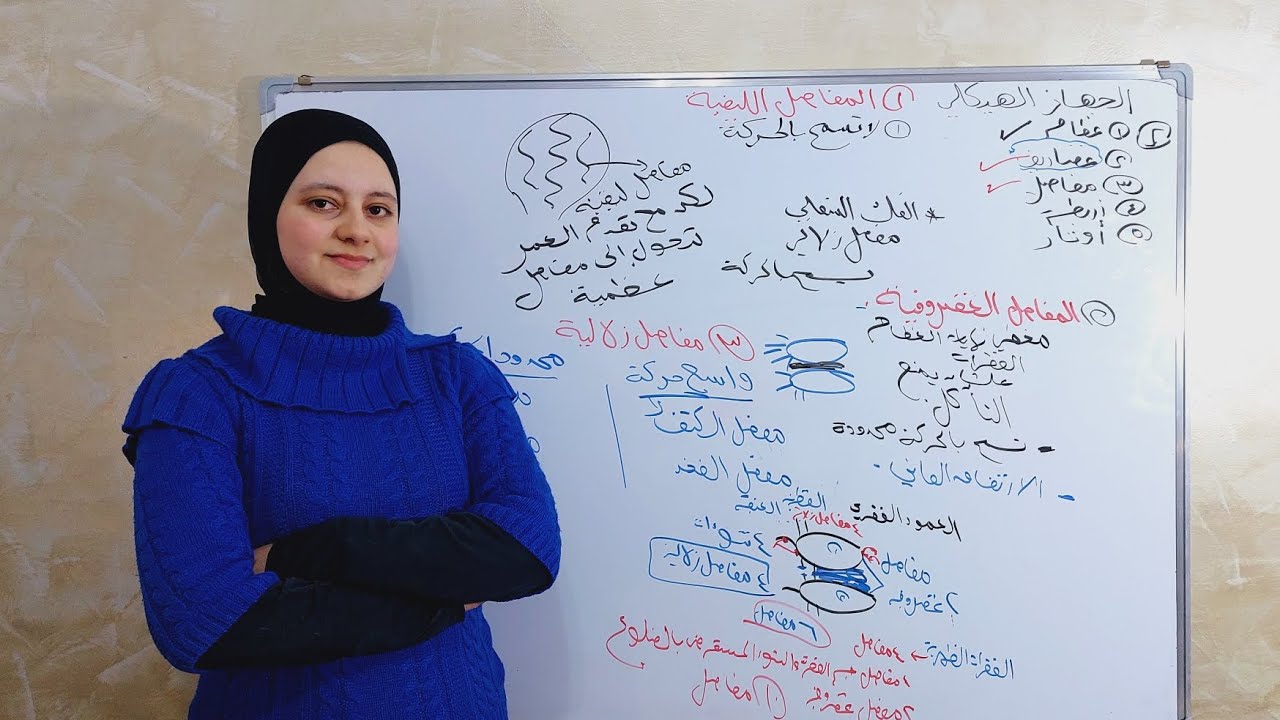 الجهاز الهيكلي
② ① عظام ✓
② غضاريف ✓
③ مفاصل ✓
④ أربطة
⑤ أوتار
① المفاصل الليفية
① لا تسمح بالحركة
مفاصل ليفية
لكن مع تقدم العمر
تتحول إلى مفاصل
عظمية
* الفك السفلي
مفصل زلالي
يسمح بالحركة
② المفاصل الغضروفية
العظام
الفقرات
يمنع
التآكل
- تسمح بالحركة محدودة
- الارتفاق العاني
③ مفاصل زلالية
واسع حركة
مفصل الكتف
مفصل الفخذ
العمود الفقري
الفقرة العنقية
٤ مفاصل زلالية
٤ نتوءات
٤ مفاصل زلالية
مفاصل
٢ غضروفية
٦ مفاصل
الفقرات الظهرية ← ٤ مفاصل
مفاصل بين الفقرة والنتوء المستعرض بالضلوع
٢ مفصل غضروفي
١٠ مفاصل